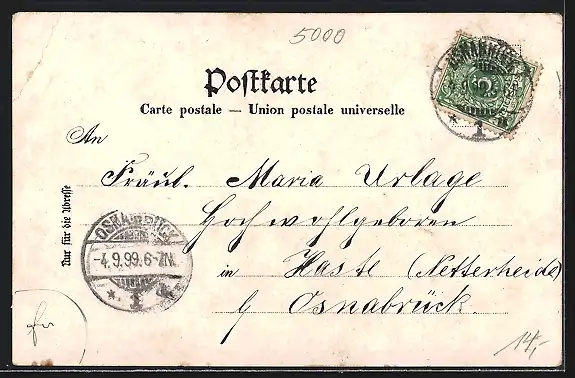 5000
Postkarte
Carte postale — Union postale universelle
An
Fräul. Maria Urlage
Hochwohlgeboren
in Haste (Netterheide)
b/ Osnabrück.
Nur für die Adresse
OSNABRÜCK
-4.9.99.6-7N.
* 1 *
OSNABRÜCK
4.9.99.6-7N
* 1
14,-